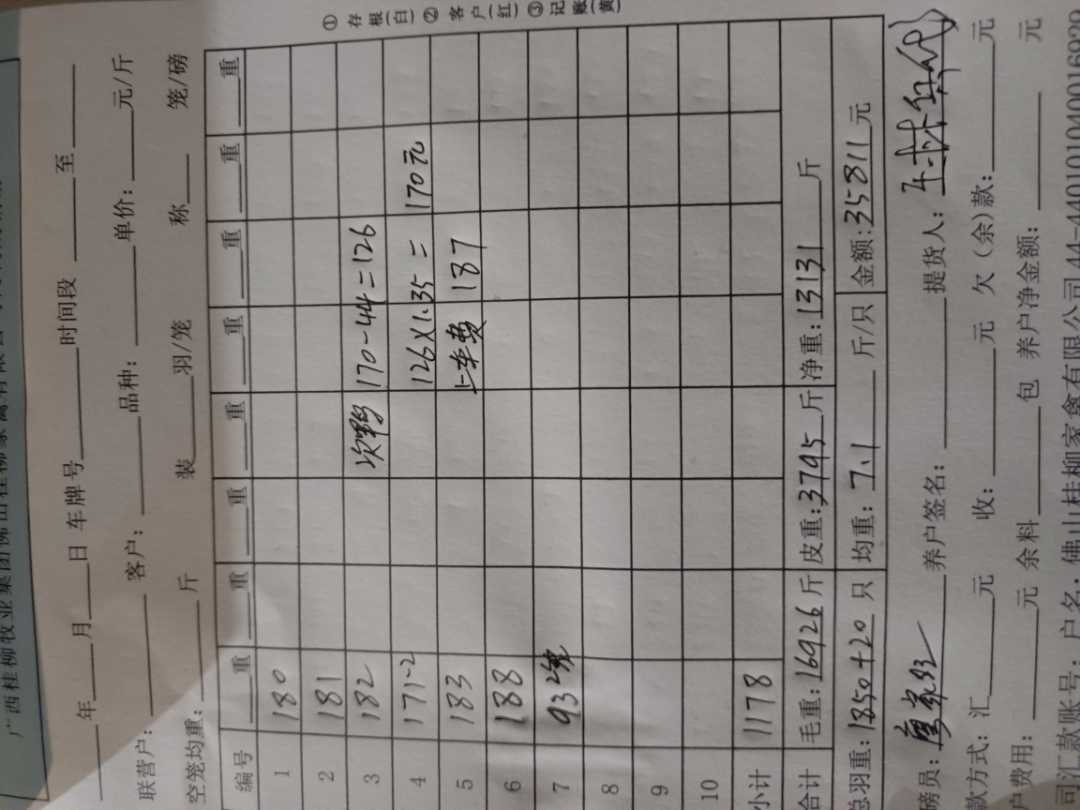 广西桂柳牧业集团佛山桂柳家禽有限公司
年___月___日 车牌号___时间段___至___
联营户:___客户:___品种:___单价:___元/斤
空笼均重:___斤 装___羽/笼 称___笼/磅
编号 ___重 ___重 ___重 ___重 ___重 ___重 ___重 ___重
1 180
2 181
3 182 次鸭 170-44=126
4 171-2 126×1.35= 170元
5 183 上车费 187
6 188
7 93
8
9
10
小计 1178
合计 毛重:16926斤 皮重:3795斤 净重:13131斤
总羽重:1850+20 只 均重:7.1 斤/只 金额:35811元
磅员:___养户签名:___提货人:
款方式:汇___元 收:___元 欠(余)款:___元
户费用:___元 余料___包 养户净金额:___元
司汇款账号:户名:佛山桂柳家禽有限公司44-440101040016929
①存根(白)②客户(红)③记账(黄)